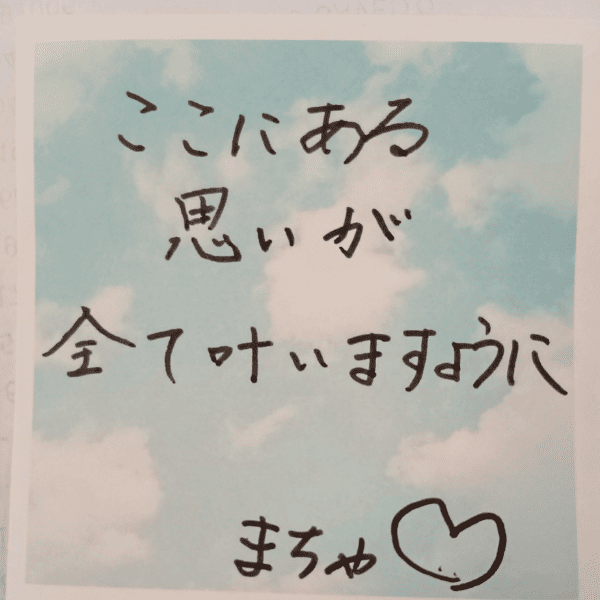 ここにある
思いが
全て叶いますように
まちゃ♡